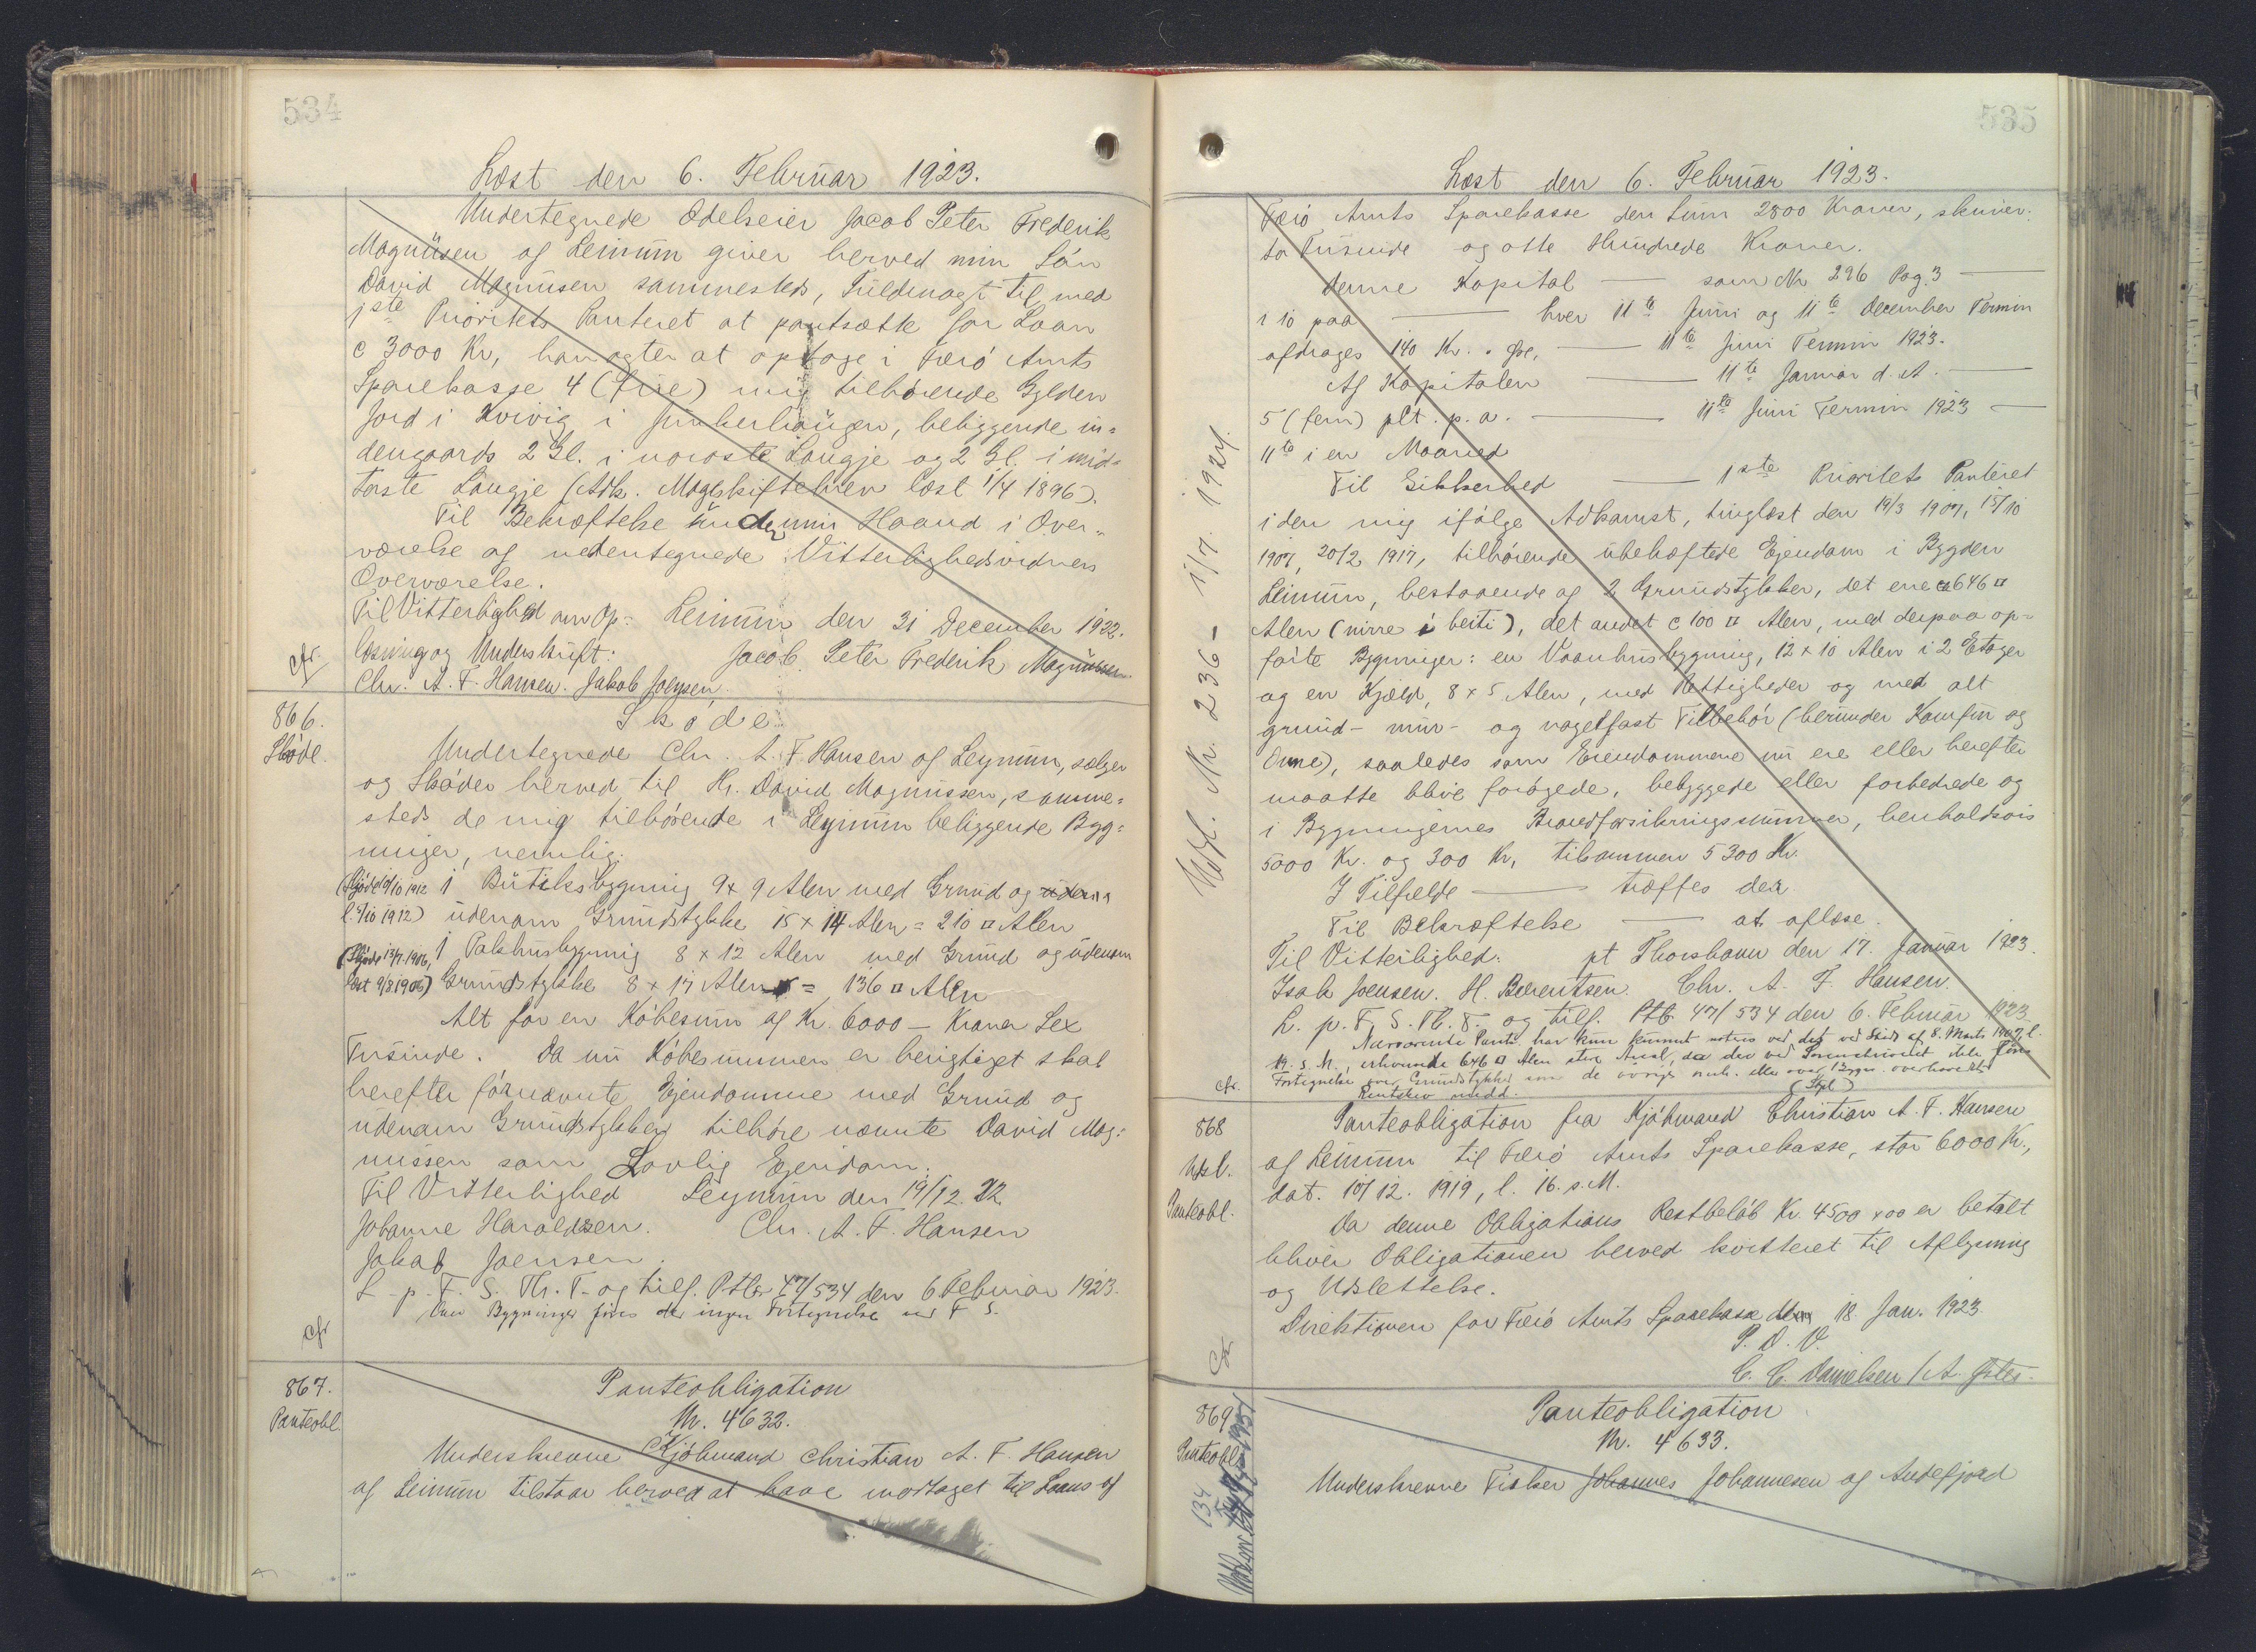 534
Læst den 6. Februar 1923.
Undertegnede Odelseier Jacob Peter Frederik
Magnusen af Leinum giver herved min Søn
David Magnusen sammesteds, Fuldmagt til med
1ste Prioritets Panteret at pantsætte for Laan
c 3000 Kr, han agter at optage i Færø Amts
Sparekasse 4 (fire) mig tilhørende Gylden
Jord i Kvivig i Junkerhaugen, beliggende in=
dengaards 2 Gl. i norste Laugje og 2 Gl. i mid=
terste Laugje (Adk. Mageskiftebrev læst 1/4 1896).
Til Bekræftelse under min Haand i Over=
værelse af undertegnede Vitterlighedsvidners
Overværelse.
Til Vitterlighed om Op= Leinum den 31 December 1922.
læsning og Underskrift: Jacob Peter Frederik Magnussen
cfr.
Chr. A. F. Hansen. Jakob Joensen.
866.
Skøde.
Skøde
Undertegnede Chr. A. F. Hansen af Leynum, sælger
og Skøder herved til Hr. David Magnussen, samme=
steds de mig tilhørende i Leynum beliggende Byg=
ninger, nemlig:
(Skjøde /10 1912 1 Butiksbygning 9 x 9 Alen med Grund og
l. /10 1912) udenom Grundstykke 15 x 14 Alen = 210 □ Alen
(Skjøde 13/7. 1906, 1 Pakhusbygning 8 x 12 Alen med Grund og udenom
læst 9/8 1906) Grundstykke 8 x 17 Alen = 136 □ Alen
Alt for en Købesum af Kr. 6000 – Kroner Sex
Tusinde. Da nu Købesummen er berigtiget skal
herefter førnævnte Ejendomme med Grund og
udenom Grundstykker tilhøre nævnte David Mag=
nussen som Lovlig Ejendom.
Til Vitterlighed Leynum den 19/12. 22
Johanne Haraldsen. Chr. A. F. Hansen
Jakob Joensen.
L. p. F. S. Th. T. og tilf. Ptb. 47/534 den 6 Februar 1923.
Over Bygninger føres der ingen Fortegnelse ved F S.
cfr
867.
Panteobl.
Panteobligation
Nr. 4632.
Underskrevne Kjøbmand Christian A. F. Hansen
af Leinum tilstaar herved at have modtaget til Laans af
535
Læst den 6. Februar 1923.
Færø Amts Sparekasse den Sum 2800 Kroner, skriver:
to Tusinde og otte Hundrede Kroner.
Denne Kapital — som Nr 296 Pag. 3 —
1 10 paa — hver 11te Juni og 11te December Termin
afdrages 140 Kr. " Øre, — 11te Juni Termin 1923.
Af Kapitalen — 11te Januar d. A. —
5 (fem) pct. p. a. — 11te Juni Termin 1923 —
11te i en Maaned
Til Sikkerhed — 1ste Prioritets Panteret
i den mig ifølge Adkomst, tinglæst den 19/3 1907, 15/10
1907, 20/2 1917, tilhørende ubehæftede Ejendom i Bygden
Leinum, bestaaende af 2 Grundstykker, det ene c 646 □
Alen (nirre i beiti), det andet c 100 □ Alen, med derpaa op=
førte Bygninger: en Vaanhusbygning, 12 x 10 Alen i 2 Etager
og en Kjæld, 8 x 5 Alen, med Rettigheder og med alt
grund- mur- og nagelfast Tilbehør (herunder Komfur og
Ovne), saaledes som Ejendommene nu ere eller herefter
maatte blive forøgede, bebyggede eller forbedrede og
i Bygningernes Brandforsikringssummer, henholdsvis
5000 Kr. og 300 Kr, tilsammen 5300 Kr.
I Tilfælde — træffes der.
Til Bekræftelse — at aflæse.
Til Vitterlighed: pt Thorshavn den 17. Januar 1923.
Isak Joensen. H. Berentsen. Chr. A. F. Hansen.
L. p. F. S. Th. T. og tilf. Ptb. 47/534 den 6. Februar 1923
Nærværende Pante har kun kunnet noteres ved det ved Skøde af 8. Marts 1907, l.
19. s. M., erhvervede 646 □ Alen store Areal, da der ved Sorenskriveriet ikke føres
Fortegnelse over Grundstykker som de øvrige eller over Bygn. overhovedet
cfr.
Udsl. Nr. 236 – 1/7. 1924.
868
Udsl.
Panteobl.
Panteobligation fra Kjøbmand Christian A. F. Hansen
af Leinum til Færø Amts Sparekasse, stor 6000 Kr.,
dat. 10/12. 1919, l. 16. s. M.
Da denne Obligations Restbeløb Kr. 4500 x 00 er betalt
bliver Obligationen herved kvitteret til Aflysning
og Udslettelse.
Direktionen for Færø Amts Sparekasse den 18. Jan. 1923
P. D. V.
C. C. Danielsen / A.
Cfr
869
Panteobl.
134
Panteobligation
Nr. 4633.
Underskrevne Fisker Johannes Johannesen af Andefjord